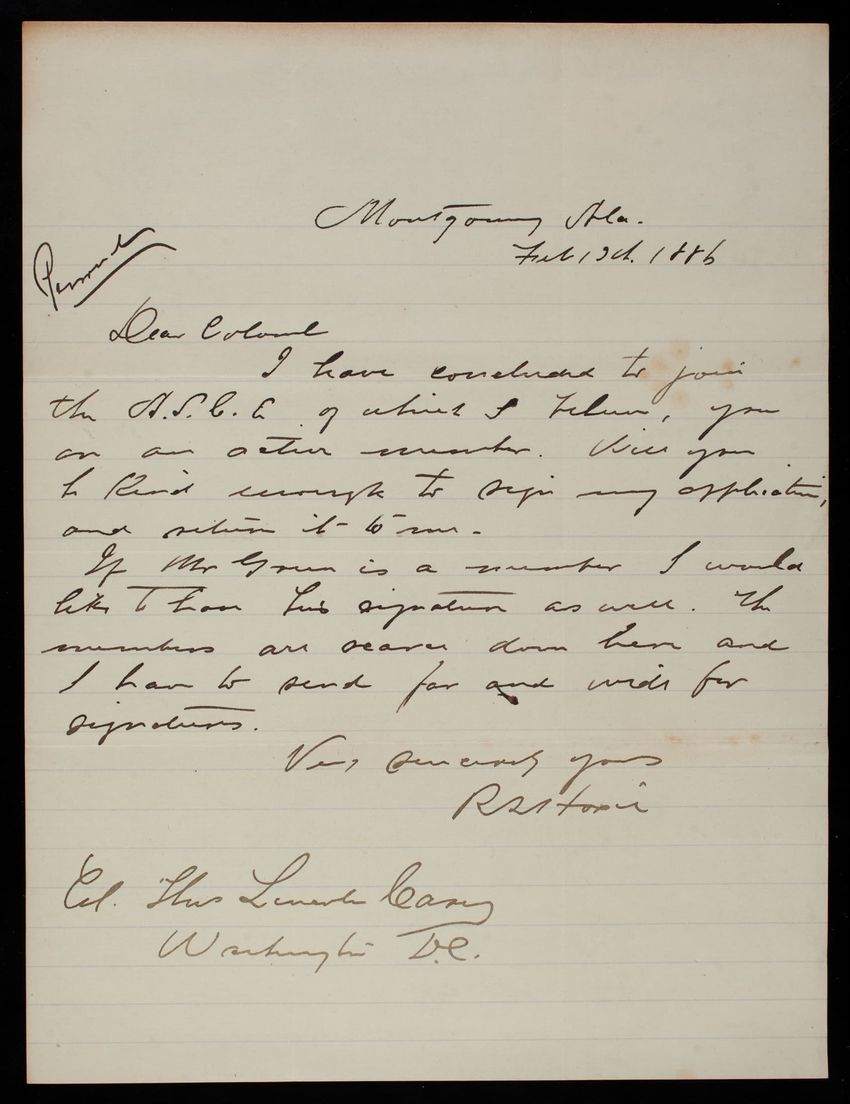 Montgomery Ala.
Feb 13th. 1886
Personal
Dear Colonel
I have concluded to join
the A.S.C.E. of which I believe, you
are an active member. Will you
be kind enough to sign my application,
and return it to me.
If Mr Green is a member I would
like to have his signature as well. The
members are scarce down here and
I have to send far and wide for
signatures.
Very sincerely yours
R L Hoxie
Col. Thos Lincoln Casey
Washington D.C.